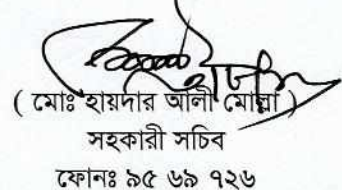 ( মোঃ হায়দার আলী মোল্লা )
সহকারী সচিব
ফোনঃ ৯৫ ৬৯ ৭২৬